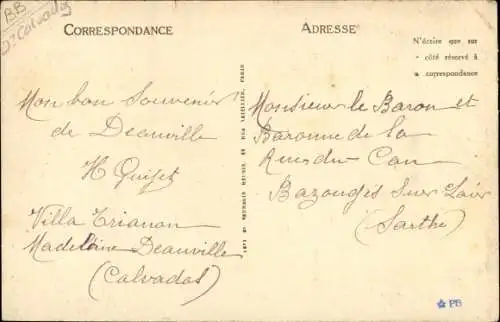 BB
D. Calvados
CORRESPONDANCE
Mon bon Souvenir
de Deauville
H Quijet
Villa Trianon
Madeleine Deauville
(Calvados)
ADRESSE
N'écrire que sur
côté réservé à
a correspondance
Monsieur le Baron et
Baronne de la
Bazouges Sur Loir
(Sarthe)
PB